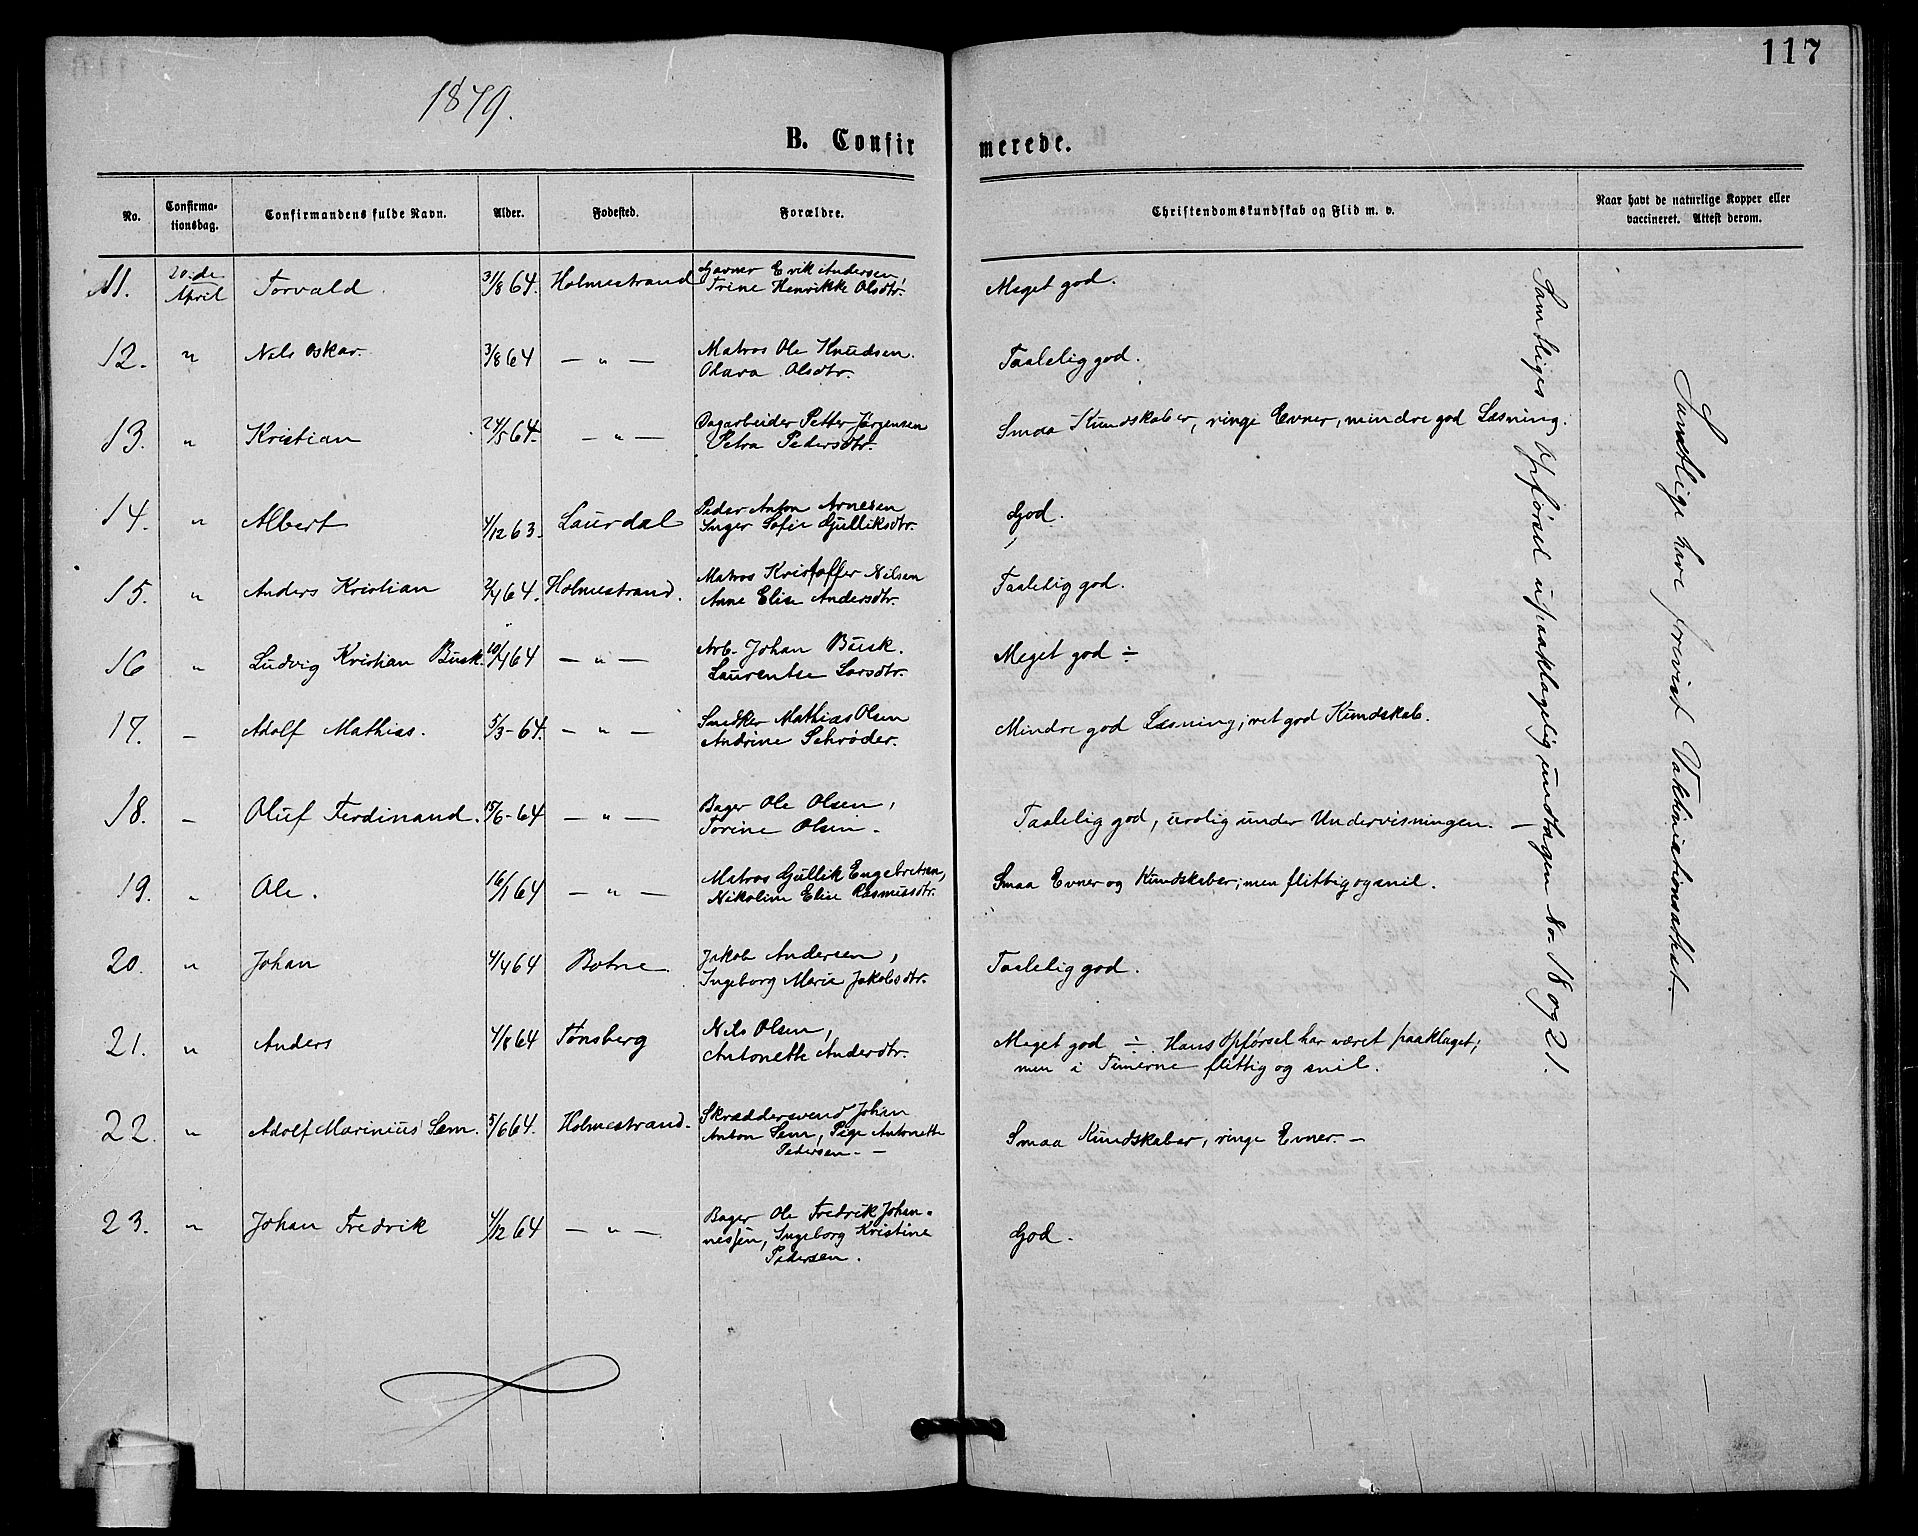 117
1879.
B. Confirmerede.
No. Confirmationsdag. Confirmandens fulde Navn. Alder. Fødested. Forældre. Christendomskundskab og Flid m. v. Naar havt de naturlige Kopper eller vaccineret. Attest derom.
11. 20de April Torvald. 31/8 64. Holmestrand Garver Erik Andersen, Meget god.
Trine Henrikke Olsdtr.
12. " Nils Oskar. 3/8 64 — " — Matros Ole Knudsen. Taalelig god.
Olava Olsdtr.
13. " Kristian 24/5 64. — " — Dagarbeider Petter Jörgensen Smaa Kundskaber, ringe Evner, mindre god Læsning.
Petra Pedersdtr.
14. " Albert 4/12 63. Laurdal Peder Anton Arnesen God.
Inger Sofie Gulliksdtr.
15. " Anders Kristian 2/4 64. Holmestrand. Matros Kristoffer Nilsen Taalelig god.
Anne Elise Andersdtr.
16 " Ludvig Kristian Busk. 10/4 64 — " — Arb. Johan Busk. Meget god ÷
Laurentse Larsdtr.
17. — Adolf Mathias. 5/3 - 64. — " — Snedker Mathias Olsen Mindre god Læsning; ret god Kundskab.
Andrine Schrøder.
18. — Oluf Ferdinand. 15/6 - 64 — " — Bager Ole Olsen, Taalelig god, urolig under Undervisningen. —
Torine Olsen.
19. " Ole. 16/1 64 — " — Matros Gullik Engebretsen, Smaa Evner og Kundskaber; men flittig og snil.
Nikoline Elise Rasmusdtr.
20. " Johan 4/4 64 Botne. Jakob Andersen, Taalelig god.
Ingeborg Marie Jakobsdtr.
21. " Anders 4/8 64 Tönsberg Nils Olsen, Meget god ÷. Hans Opførsel har været paaklaget;
Antonette Andersdtr. men i Timerne flittig og snil.
22. " Adolf Marinius Sem. 5/6 64. Holmestrand. Skræddersvend Johan
Anton Sem, Pige Antonette Smaa Kundskaber, ringe Evner. —
Pedersen. —
23. " Johan Fredrik 4/12 64 — " — Bager Ole Fredrik Johan-
nessen, Ingeborg Kristine God.
Pedersen.
Samtliges Opförsel upaaklagelig undtagen No. 18 og 21.
Samtlige have forevist Vakkinationsattest. —